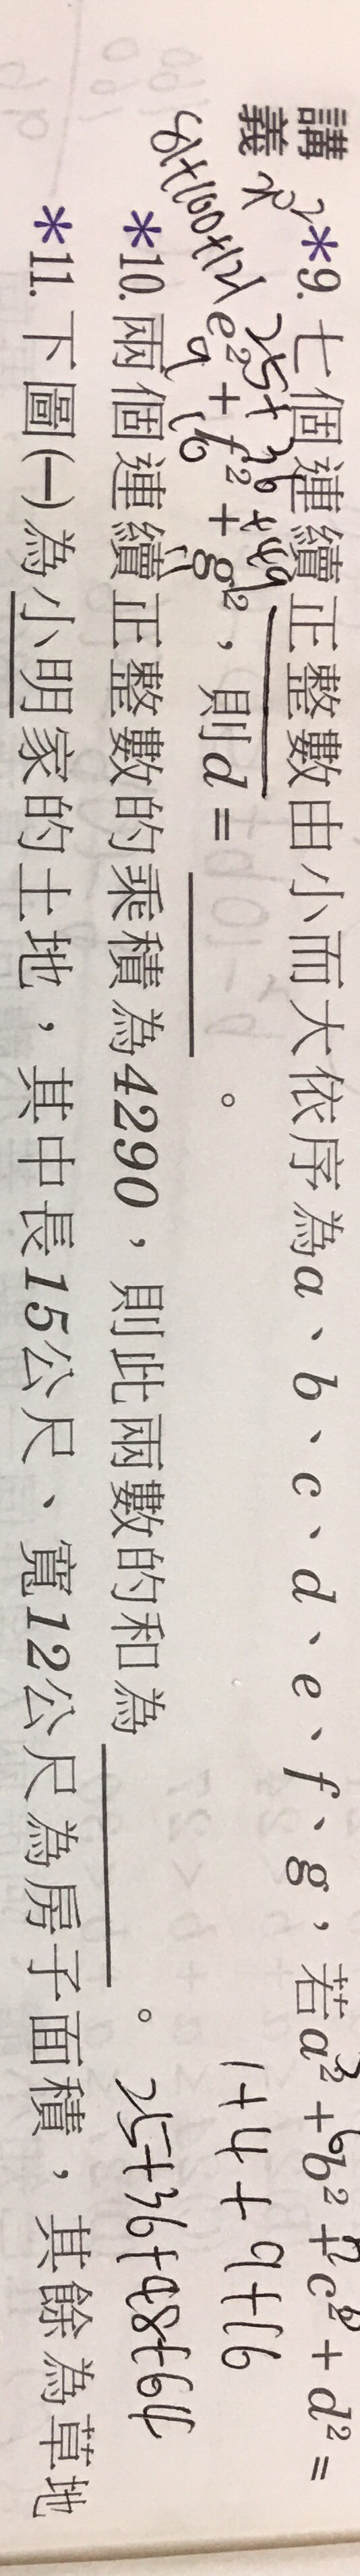 講義
*9. 七個連續正整數由小而大依序為a、b、c、d、e、f、g，若a²+b²+c²+d²=
e²+f²+g²，則d=____。
1+4+9+16
*10. 兩個連續正整數的乘積為4290，則此兩數的和為____。
25+36+48+64
*11. 下圖(一)為小明家的土地，其中長15公尺、寬12公尺為房子面積，其餘為草地